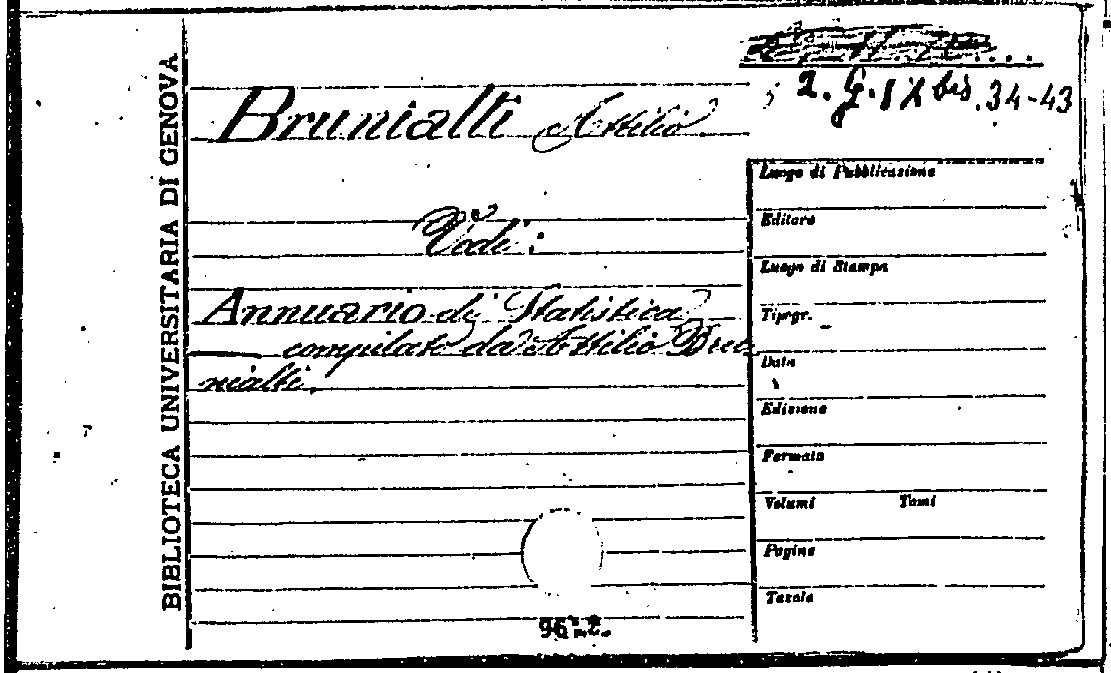 BIBLIOTECA UNIVERSITARIA DI GENOVA
2. G. IX bis. 34-43
Brunialti Attilio
Vedi:
Annuario di Statistica
compilato da Attilio Bru
nialti.
Luogo di Pubblicazione
Editore
Luogo di Stampa
Tipogr.
Data
Edizione
Formato
Volumi Tomi
Pagine
Tavole